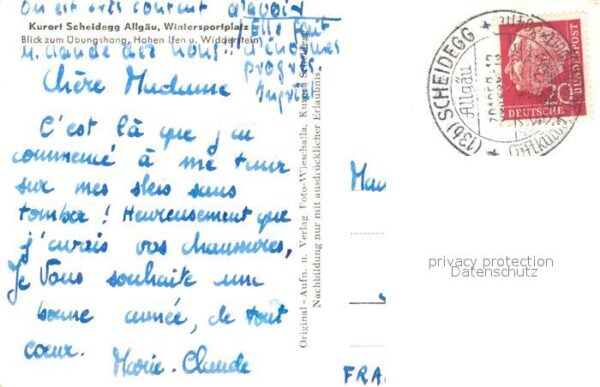 On est très content d'avoir
M. Claude chez nous! Elle fait
d'énormes
progrès.
Ingrid
Kurort Scheidegg Allgäu, Wintersportplatz
Blick zum Übungshang, Hohen Ifen u. Widderstein
Chère Madame
C'est là que j'ai
commencé à me tenir
sur mes skis sans
tomber! Heureusement que
j'avais vos chaussures,
Je vous souhaite une
bonne année, de tout
cœur.
Marie-Claude
Original-Aufn. u. Verlag Foto-Wieschalla, Kurort Scheidegg
Nachbildung nur mit ausdrücklicher Erlaubnis.
(13b) SCHEIDEGG
Allgäu
20
DEUTSCHE
BUNDESPOST
Mad
FRA
privacy protection
Datenschutz